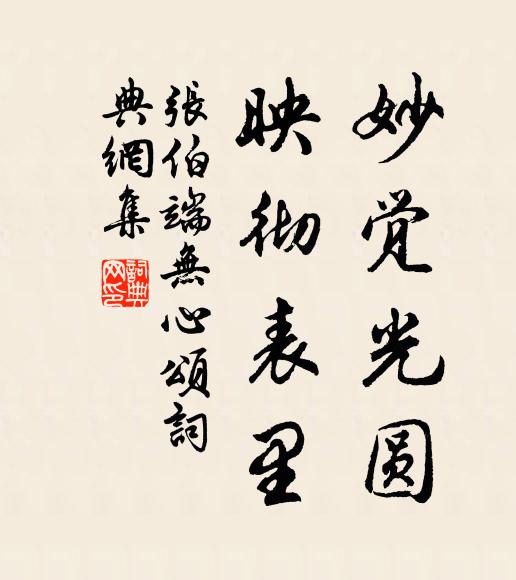 妙觉光圆
映彻表里
張伯端無心頌詞
典網集
詞典网印